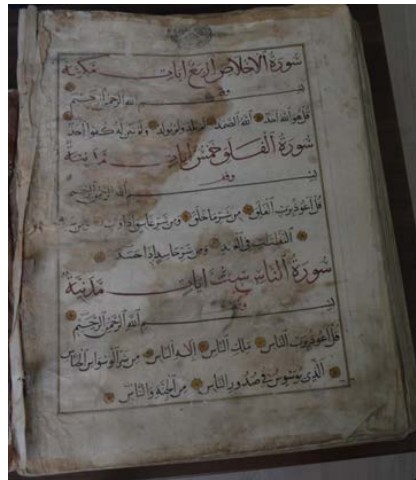 سُورَةُ الْاِخْلَاصِ اَرْبَعُ اٰيَاتٍ مَكِّيَّة
بِسْمِ اللهِ الرَّحْمٰنِ الرَّحِيْمِ
قُلْ هُوَ اللهُ اَحَدٌ اَللهُ الصَّمَدُ لَمْ يَلِدْ وَلَمْ يُولَدْ وَلَمْ يَكُنْ لَهُ كُفُوًا اَحَدٌ
سُورَةُ الْفَلَقِ خَمْسُ اٰيَاتٍ مَدَنِيَّة
بِسْمِ اللهِ الرَّحْمٰنِ الرَّحِيْمِ
قُلْ اَعُوْذُ بِرَبِّ الْفَلَقِ مِنْ شَرِّ مَا خَلَقَ وَمِنْ شَرِّ غَاسِقٍ اِذَا وَقَبَ وَمِنْ شَرِّ
النَّفّٰثٰتِ فِي الْعُقَدِ وَمِنْ شَرِّ حَاسِدٍ اِذَا حَسَدَ
سُورَةُ النَّاسِ سِتُّ اٰيَاتٍ مَدَنِيَّة
بِسْمِ اللهِ الرَّحْمٰنِ الرَّحِيْمِ
قُلْ اَعُوْذُ بِرَبِّ النَّاسِ مَلِكِ النَّاسِ اِلٰهِ النَّاسِ مِنْ شَرِّ الْوَسْوَاسِ الْخَنَّاسِ
الَّذِيْ يُوَسْوِسُ فِيْ صُدُوْرِ النَّاسِ مِنَ الْجِنَّةِ وَالنَّاسِ